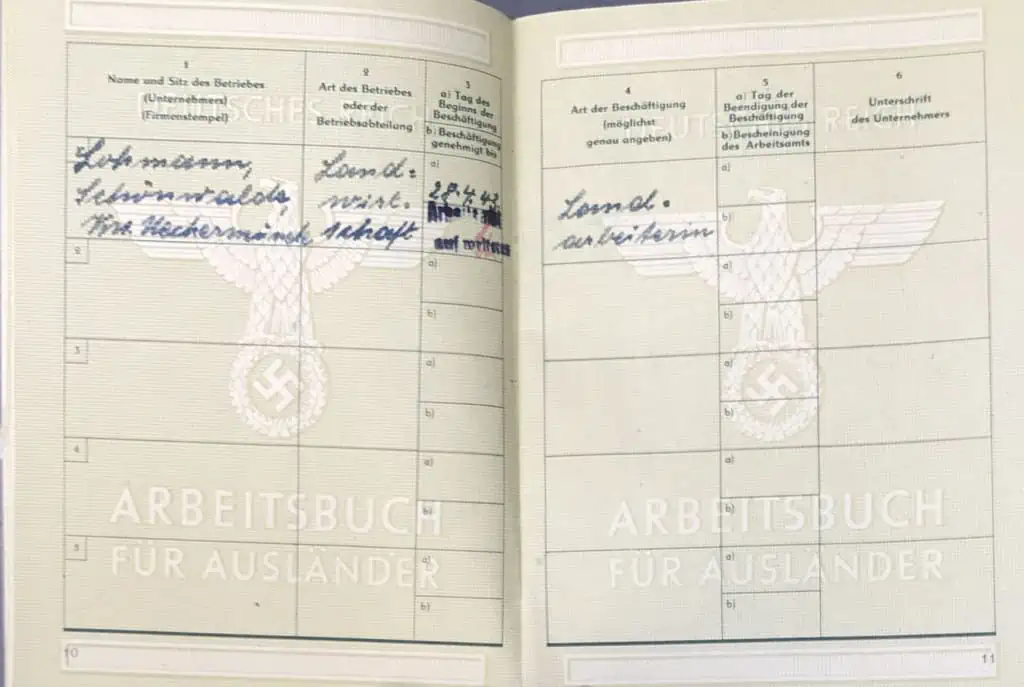 1
Name und Sitz des Betriebes
(Unternehmers)
(Firmenstempel)
2
Art des Betriebes
oder der
Betriebsabteilung
3
a) Tag des
Beginns der
Beschäftigung
b) Beschäftigung
genehmigt bis
Lohmann,
Schönwalde,
Krs. Ueckermünde
Land=
wirt-
schaft
a)
28.4.42
auf weiteres
2
a)
b)
3
a)
b)
4
a)
b)
5
a)
b)
DEUTSCHES REICH
ARBEITSBUCH
FÜR AUSLÄNDER
10
4
Art der Beschäftigung
(möglichst
genau angeben)
5
a) Tag der
Beendigung der
Beschäftigung
b) Bescheinigung
des Arbeitsamts
6
Unterschrift
des Unternehmers
Land-
arbeiterin
a)
b)
a)
b)
a)
b)
a)
b)
a)
b)
DEUTSCHES REICH
ARBEITSBUCH
FÜR AUSLÄNDER
11